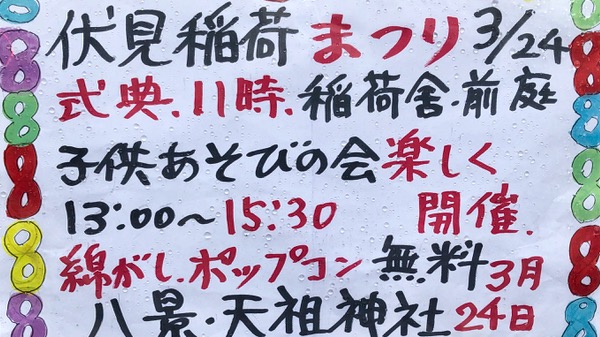 伏見稲荷まつり3/24
式典.11時.稲荷舎.前庭
子供あそびの会楽しく
13:00～15:30 開催.
綿がし.ポップコン無料3月
八景・天祖神社24日